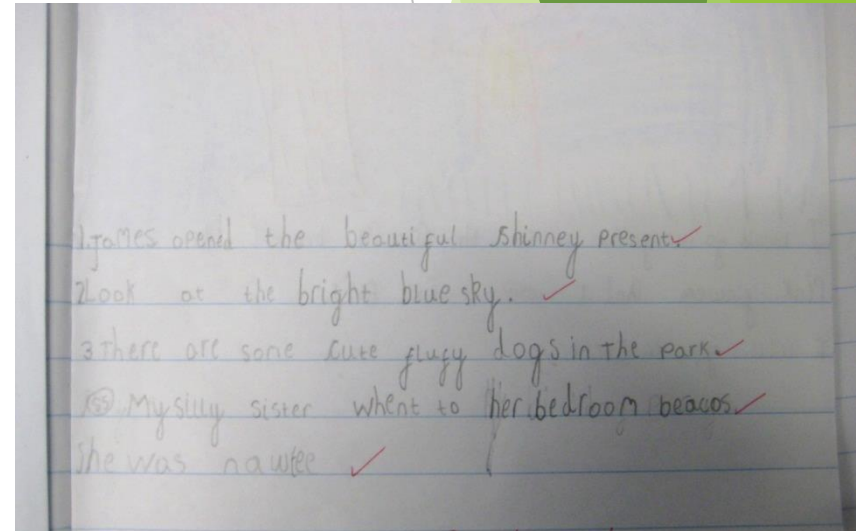 1.James opened the beautiful shinney present.
2Look at the bright blue sky.
3 There are some cute flufy dogs in the park.
My silly sister whent to her bedroom beacos
she was nawtee